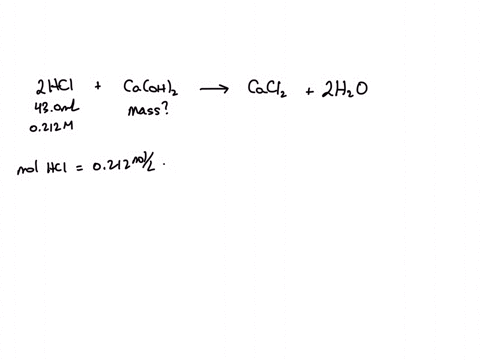 2HCl + Ca(OH)₂ ⟶ CaCl₂ + 2H₂O
43.0mL mass?
0.212 M
mol HCl = 0.212 mol/L ·